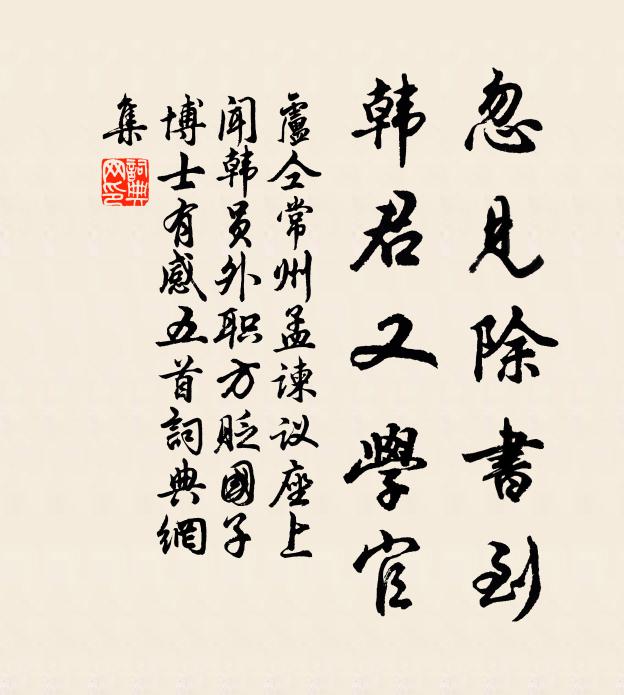 忽见除書到
韩君又學官
盧仝常州孟谏议座上
闻韩员外职方貶國子
博士有感五首詞典網
集
詞典網印